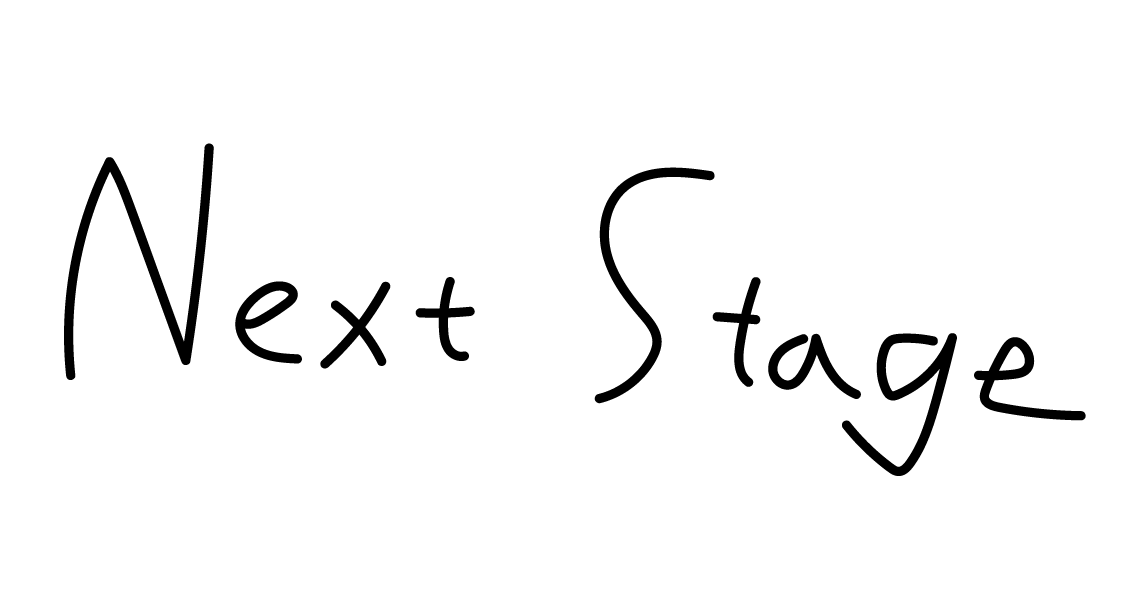 Next Stage